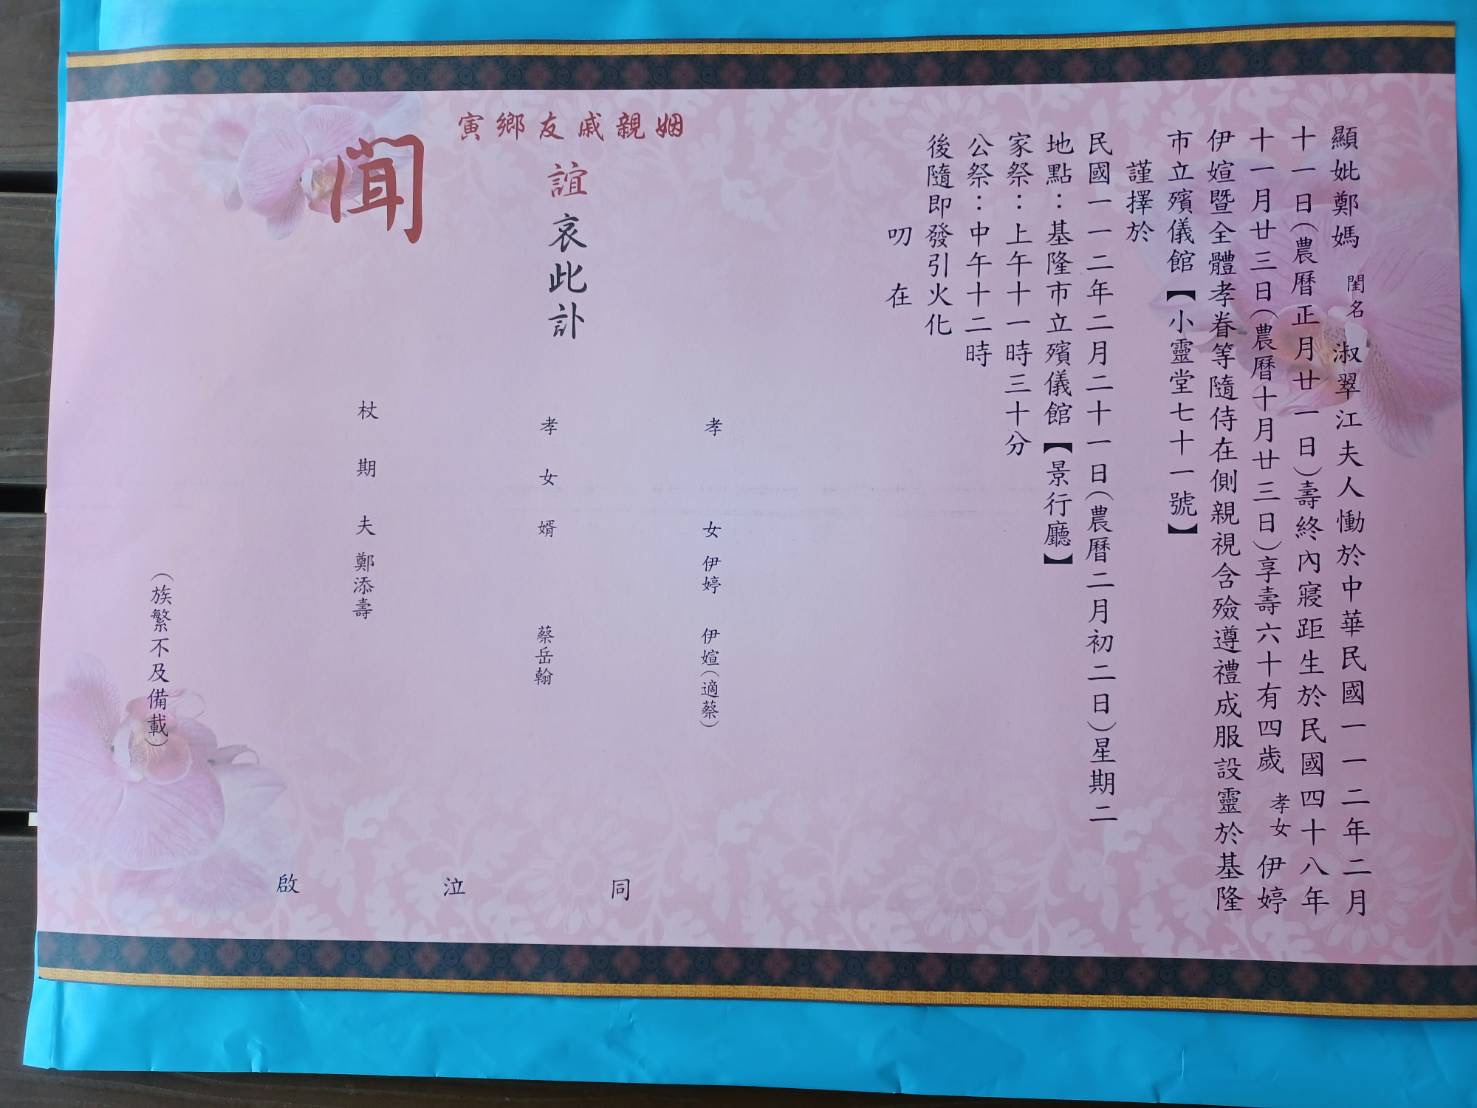 顯妣鄭媽閨名淑翠江夫人慟於中華民國一一二年二月
十一日(農曆正月廿一日)壽終內寢距生於民國四十八年
十一月廿三日(農曆十月廿三日)享壽六十有四歲孝女伊婷
伊媗暨全體孝眷等隨侍在側親視含殮遵禮成服設靈於基隆
市立殯儀館【小靈堂七十一號】
謹擇於
民國一一二年二月二十一日(農曆二月初二日)星期二
地點：基隆市立殯儀館【景行廳】
家祭：上午十一時三十分
公祭：中午十二時
後隨即發引火化
叨在
姻親戚友鄉寅
誼哀此訃
聞
孝女伊婷 伊媗(適蔡)
孝女婿 蔡岳翰
杖期夫鄭添壽
(族繁不及備載)
同泣啟